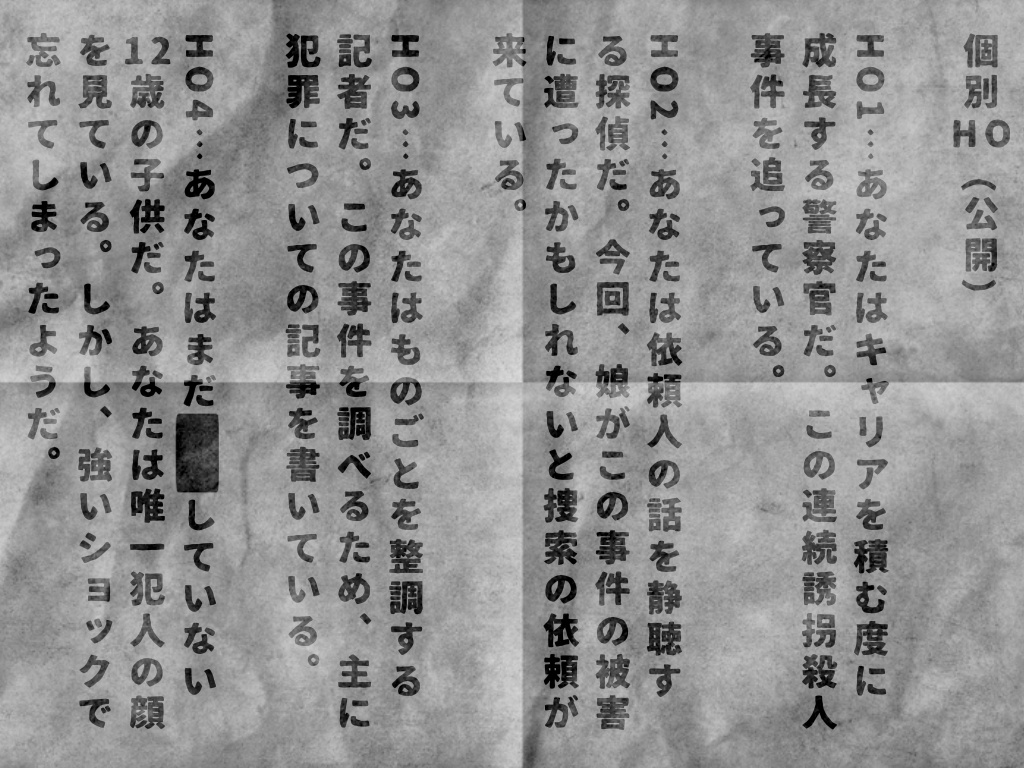 個別HO（公開）
HO1…あなたはキャリアを積む度に
成長する警察官だ。この連続誘拐殺人
事件を追っている。
HO2…あなたは依頼人の話を静聴す
る探偵だ。今回、娘がこの事件の被害
に遭ったかもしれないと捜索の依頼が
来ている。
HO3…あなたはものごとを整調する
記者だ。この事件を調べるため、主に
犯罪についての記事を書いている。
HO4…あなたはまだしていない
12歳の子供だ。あなたは唯一犯人の顔
を見ている。しかし、強いショックで
忘れてしまったようだ。